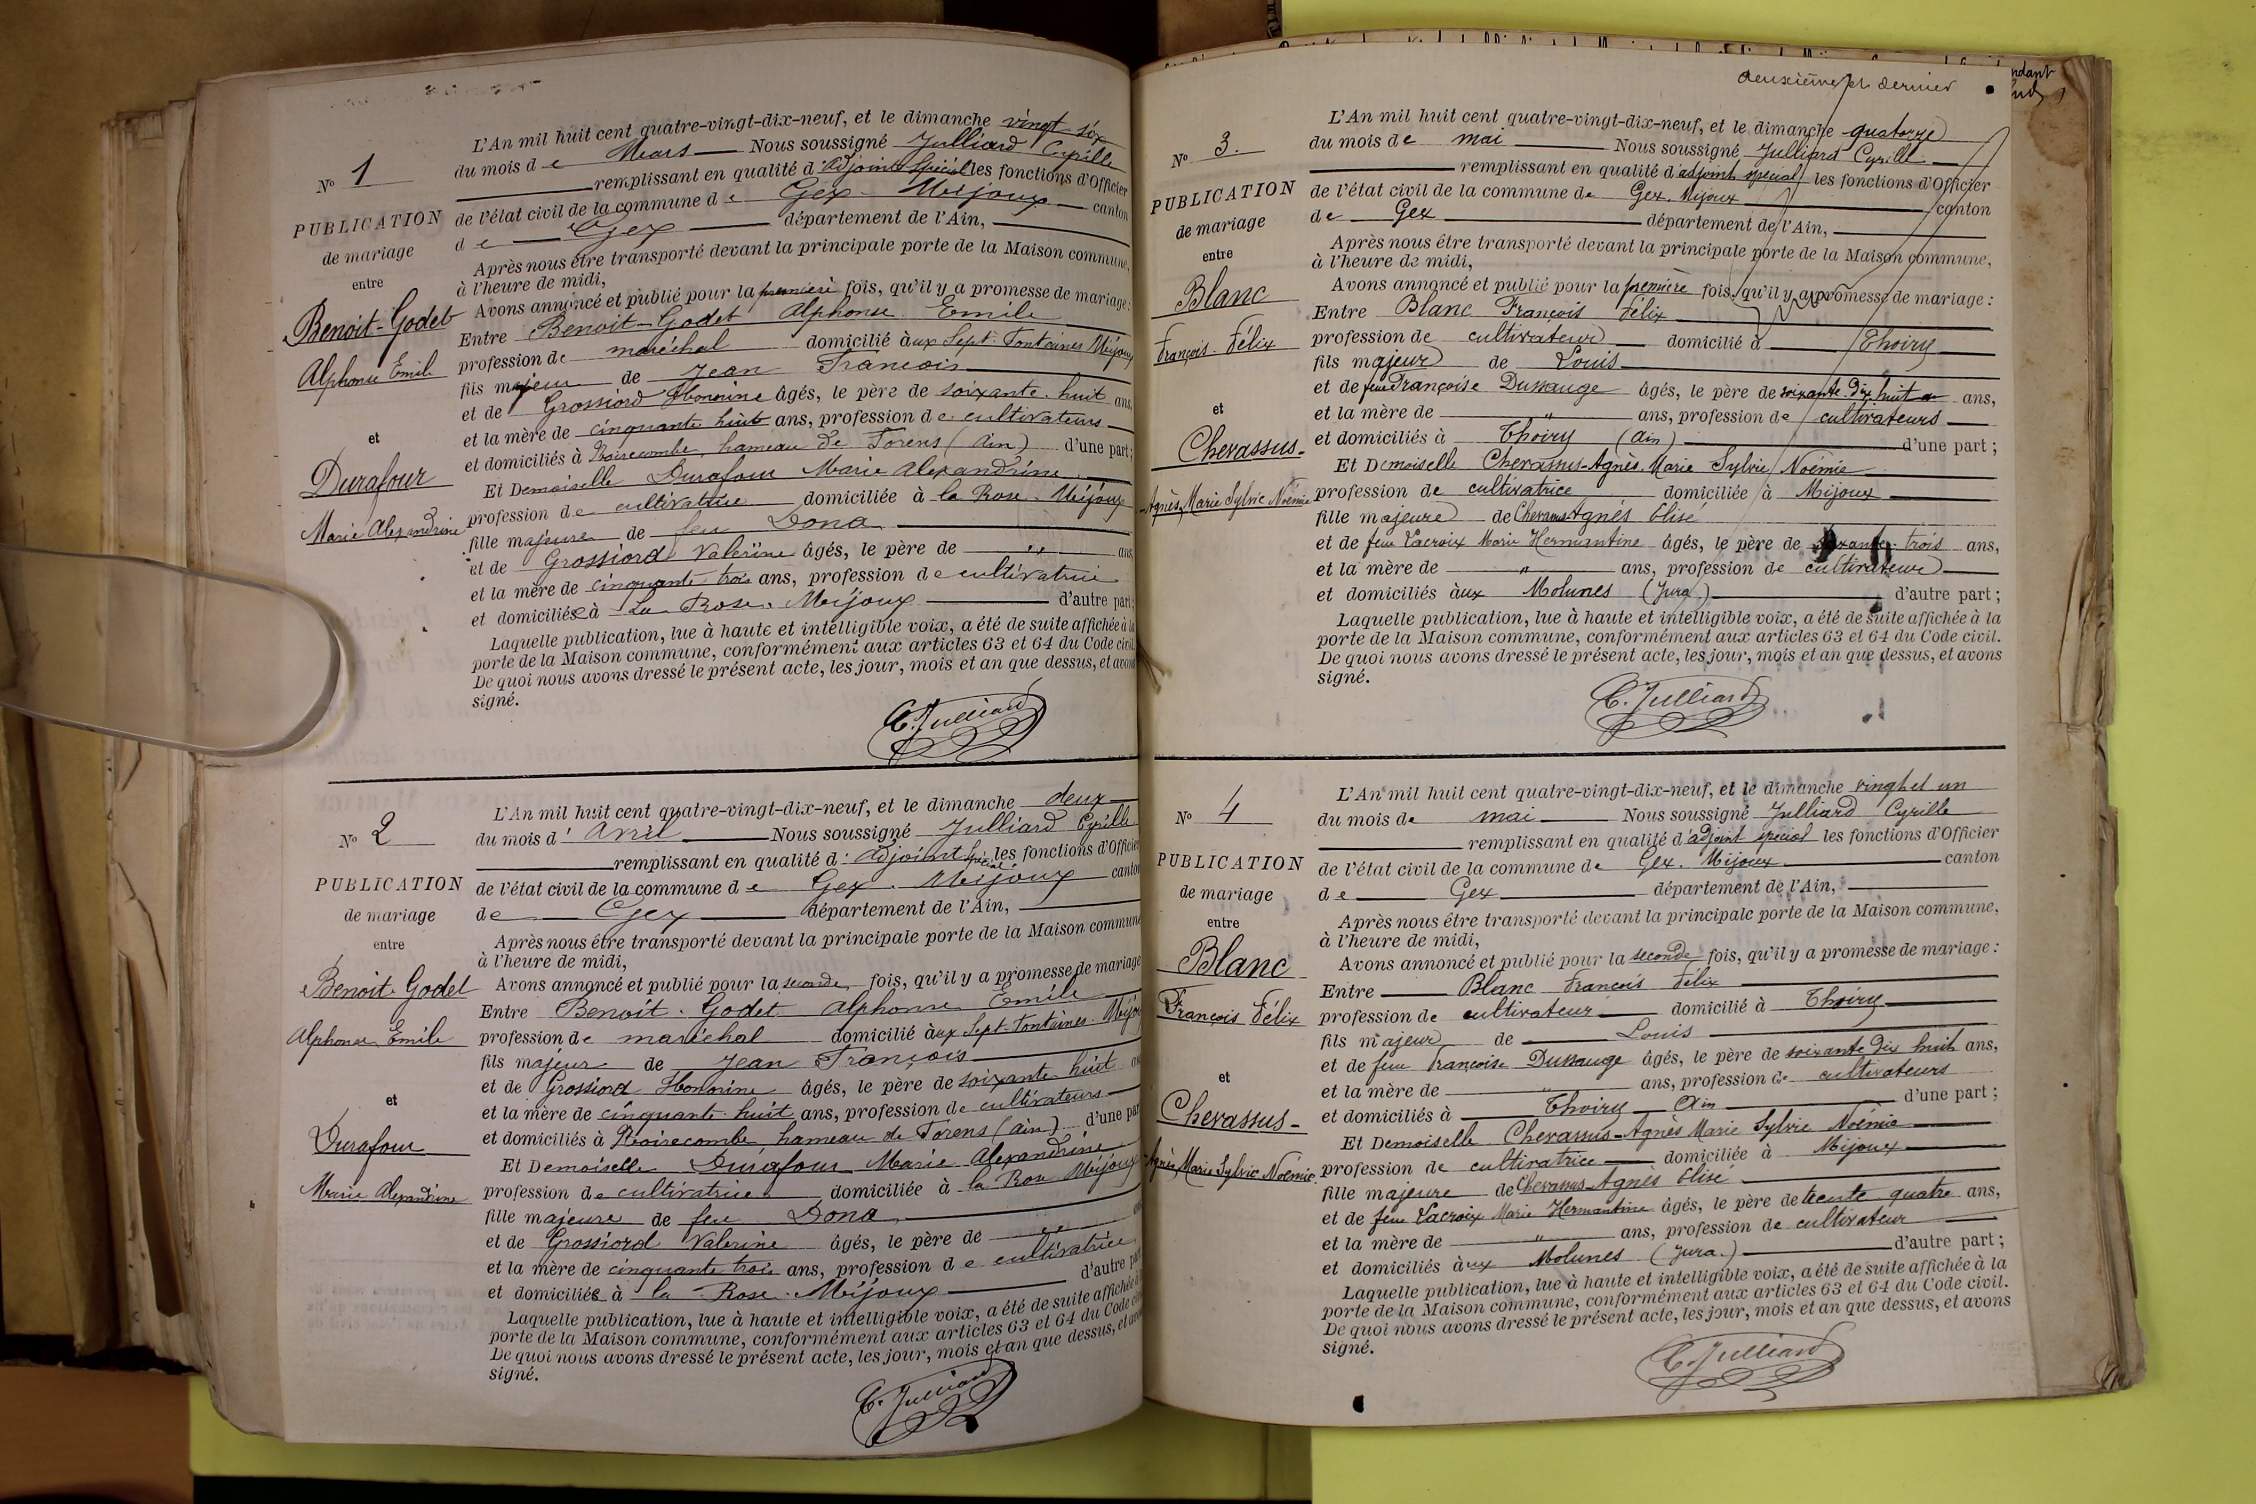 N° 1
PUBLICATION
de mariage
entre
Benoit-Godet
Alphonse Emile
et
Durafour
Marie Alexandrine
L'An mil huit cent quatre-vingt-dix-neuf, et le dimanche vingt-six
du mois de Mars Nous soussigné Julliard Cyrille
remplissant en qualité d'adjoint spécial les fonctions d'Officier
de l'état civil de la commune de Gex-Mijoux canton
de Gex département de l'Ain,
Après nous être transporté devant la principale porte de la Maison commune,
à l'heure de midi,
Avons annoncé et publié pour la première fois, qu'il y a promesse de mariage :
Entre Benoit-Godet Alphonse Emile
profession de maréchal domicilié aux Sept-Fontaines Mijoux
fils majeur de Jean François
et de Grossiord Honorine âgés, le père de soixante-huit ans,
et la mère de cinquante huit ans, profession de cultivateurs
et domiciliés à Noirecombe, hameau de Forens (Ain) d'une part ;
Et Demoiselle Durafour Marie Alexandrine
profession de cultivatrice domiciliée à la Rose-Mijoux
fille majeure de feu Dona
et de Grossiord Valerine âgés, le père de " ans,
et la mère de cinquante trois ans, profession de cultivatrice
et domiciliée à La Rose. Mijoux d'autre part ;
Laquelle publication, lue à haute et intelligible voix, a été de suite affichée à la
porte de la Maison commune, conformément aux articles 63 et 64 du Code civil.
De quoi nous avons dressé le présent acte, les jour, mois et an que dessus, et avons
signé.
C. Julliard
N° 2
PUBLICATION
de mariage
entre
Benoit-Godet
Alphonse Emile
et
Durafour
Marie Alexandrine
L'An mil huit cent quatre-vingt-dix-neuf, et le dimanche deux
du mois d'avril Nous soussigné Julliard Cyrille
remplissant en qualité d'adjoint spécial les fonctions d'Officier
de l'état civil de la commune de Gex. Mijoux canton
de Gex département de l'Ain,
Après nous être transporté devant la principale porte de la Maison commune
à l'heure de midi,
Avons annoncé et publié pour la seconde fois, qu'il y a promesse de mariage
Entre Benoit-Godet Alphonse Emile
profession de maréchal domicilié aux Sept-Fontaines-Mijoux
fils majeur de Jean François
et de Grossiord Honorine âgés, le père de soixante huit ans
et la mère de cinquante-huit ans, profession de cultivateurs
et domiciliés à Noirecombe hameau de Forens (Ain) d'une part
Et Demoiselle Durafour Marie Alexandrine
profession de cultivatrice domiciliée à la Rose Mijoux
fille majeure de feu Dona
et de Grossiord Valerine âgés, le père de "
et la mère de cinquante trois ans, profession de cultivatrice
et domiciliée à la Rose. Mijoux d'autre part
Laquelle publication, lue à haute et intelligible voix, a été de suite affichée à
porte de la Maison commune, conformément aux articles 63 et 64 du Code civil
De quoi nous avons dressé le présent acte, les jour, mois et an que dessus, et avons
signé.
C. Julliard
deuxième et dernier
N° 3.
PUBLICATION
de mariage
entre
Blanc
François-Félix
et
Chevassus-
-Agnès, Marie Sylvie Noémie
L'An mil huit cent quatre-vingt-dix-neuf, et le dimanche quatorze
du mois de mai Nous soussigné Julliard Cyrille
remplissant en qualité d'adjoint spécial les fonctions d'Officier
de l'état civil de la commune de Gex. Mijoux canton
de Gex département de l'Ain,
Après nous être transporté devant la principale porte de la Maison commune,
à l'heure de midi,
Avons annoncé et publié pour la première fois, qu'il y a promesse de mariage :
Entre Blanc François Félix
profession de cultivateur domicilié à Thoiry
fils majeur de Louis
et de feue Françoise Dussauge âgés, le père de soixante-dix huit ans,
et la mère de " ans, profession de cultivateurs
et domiciliés à Thoiry (Ain) d'une part ;
Et Demoiselle Chevassus-Agnès Marie Sylvie Noémie
profession de cultivatrice domiciliée à Mijoux
fille majeure de Chevassus Agnès Elisé
et de feue Lacroix Marie Hermantine âgés, le père de trois ans,
et la mère de " ans, profession de cultivateur
et domiciliés aux Molunes (Jura.) d'autre part ;
Laquelle publication, lue à haute et intelligible voix, a été de suite affichée à la
porte de la Maison commune, conformément aux articles 63 et 64 du Code civil.
De quoi nous avons dressé le présent acte, les jour, mois et an que dessus, et avons
signé.
C. Julliard
N° 4
PUBLICATION
de mariage
entre
Blanc
François Félix
et
Chevassus-
-Agnès, Marie Sylvie Noémie
L'An mil huit cent quatre-vingt-dix-neuf, et le dimanche vingt et un
du mois de mai Nous soussigné Julliard Cyrille
remplissant en qualité d'adjoint spécial les fonctions d'Officier
de l'état civil de la commune de Gex. Mijoux canton
de Gex département de l'Ain,
Après nous être transporté devant la principale porte de la Maison commune,
à l'heure de midi,
Avons annoncé et publié pour la seconde fois, qu'il y a promesse de mariage :
Entre Blanc François Félix
profession de cultivateur domicilié à Thoiry
fils majeur de Louis
et de feue Françoise Dussauge âgés, le père de soixante dix huit ans,
et la mère de " ans, profession de cultivateurs
et domiciliés à Thoiry Ain d'une part ;
Et Demoiselle Chevassus-Agnès Marie Sylvie Noémie
profession de cultivatrice domiciliée à Mijoux
fille majeure de Chevassus-Agnès Elisé
et de feue Lacroix Marie Hermantine âgés, le père de trente-quatre ans,
et la mère de " ans, profession de cultivateur
et domiciliés aux Molunes (Jura.) d'autre part ;
Laquelle publication, lue à haute et intelligible voix, a été de suite affichée à la
porte de la Maison commune, conformément aux articles 63 et 64 du Code civil.
De quoi nous avons dressé le présent acte, les jour, mois et an que dessus, et avons
signé.
C. Julliard